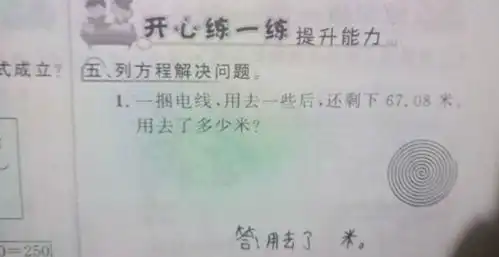 开心练一练 提升能力
式成立?
五、列方程解决问题。
1. 一捆电线,用去一些后,还剩下 67.08 米,
用去了多少米?
答:用去了 米。
0=250